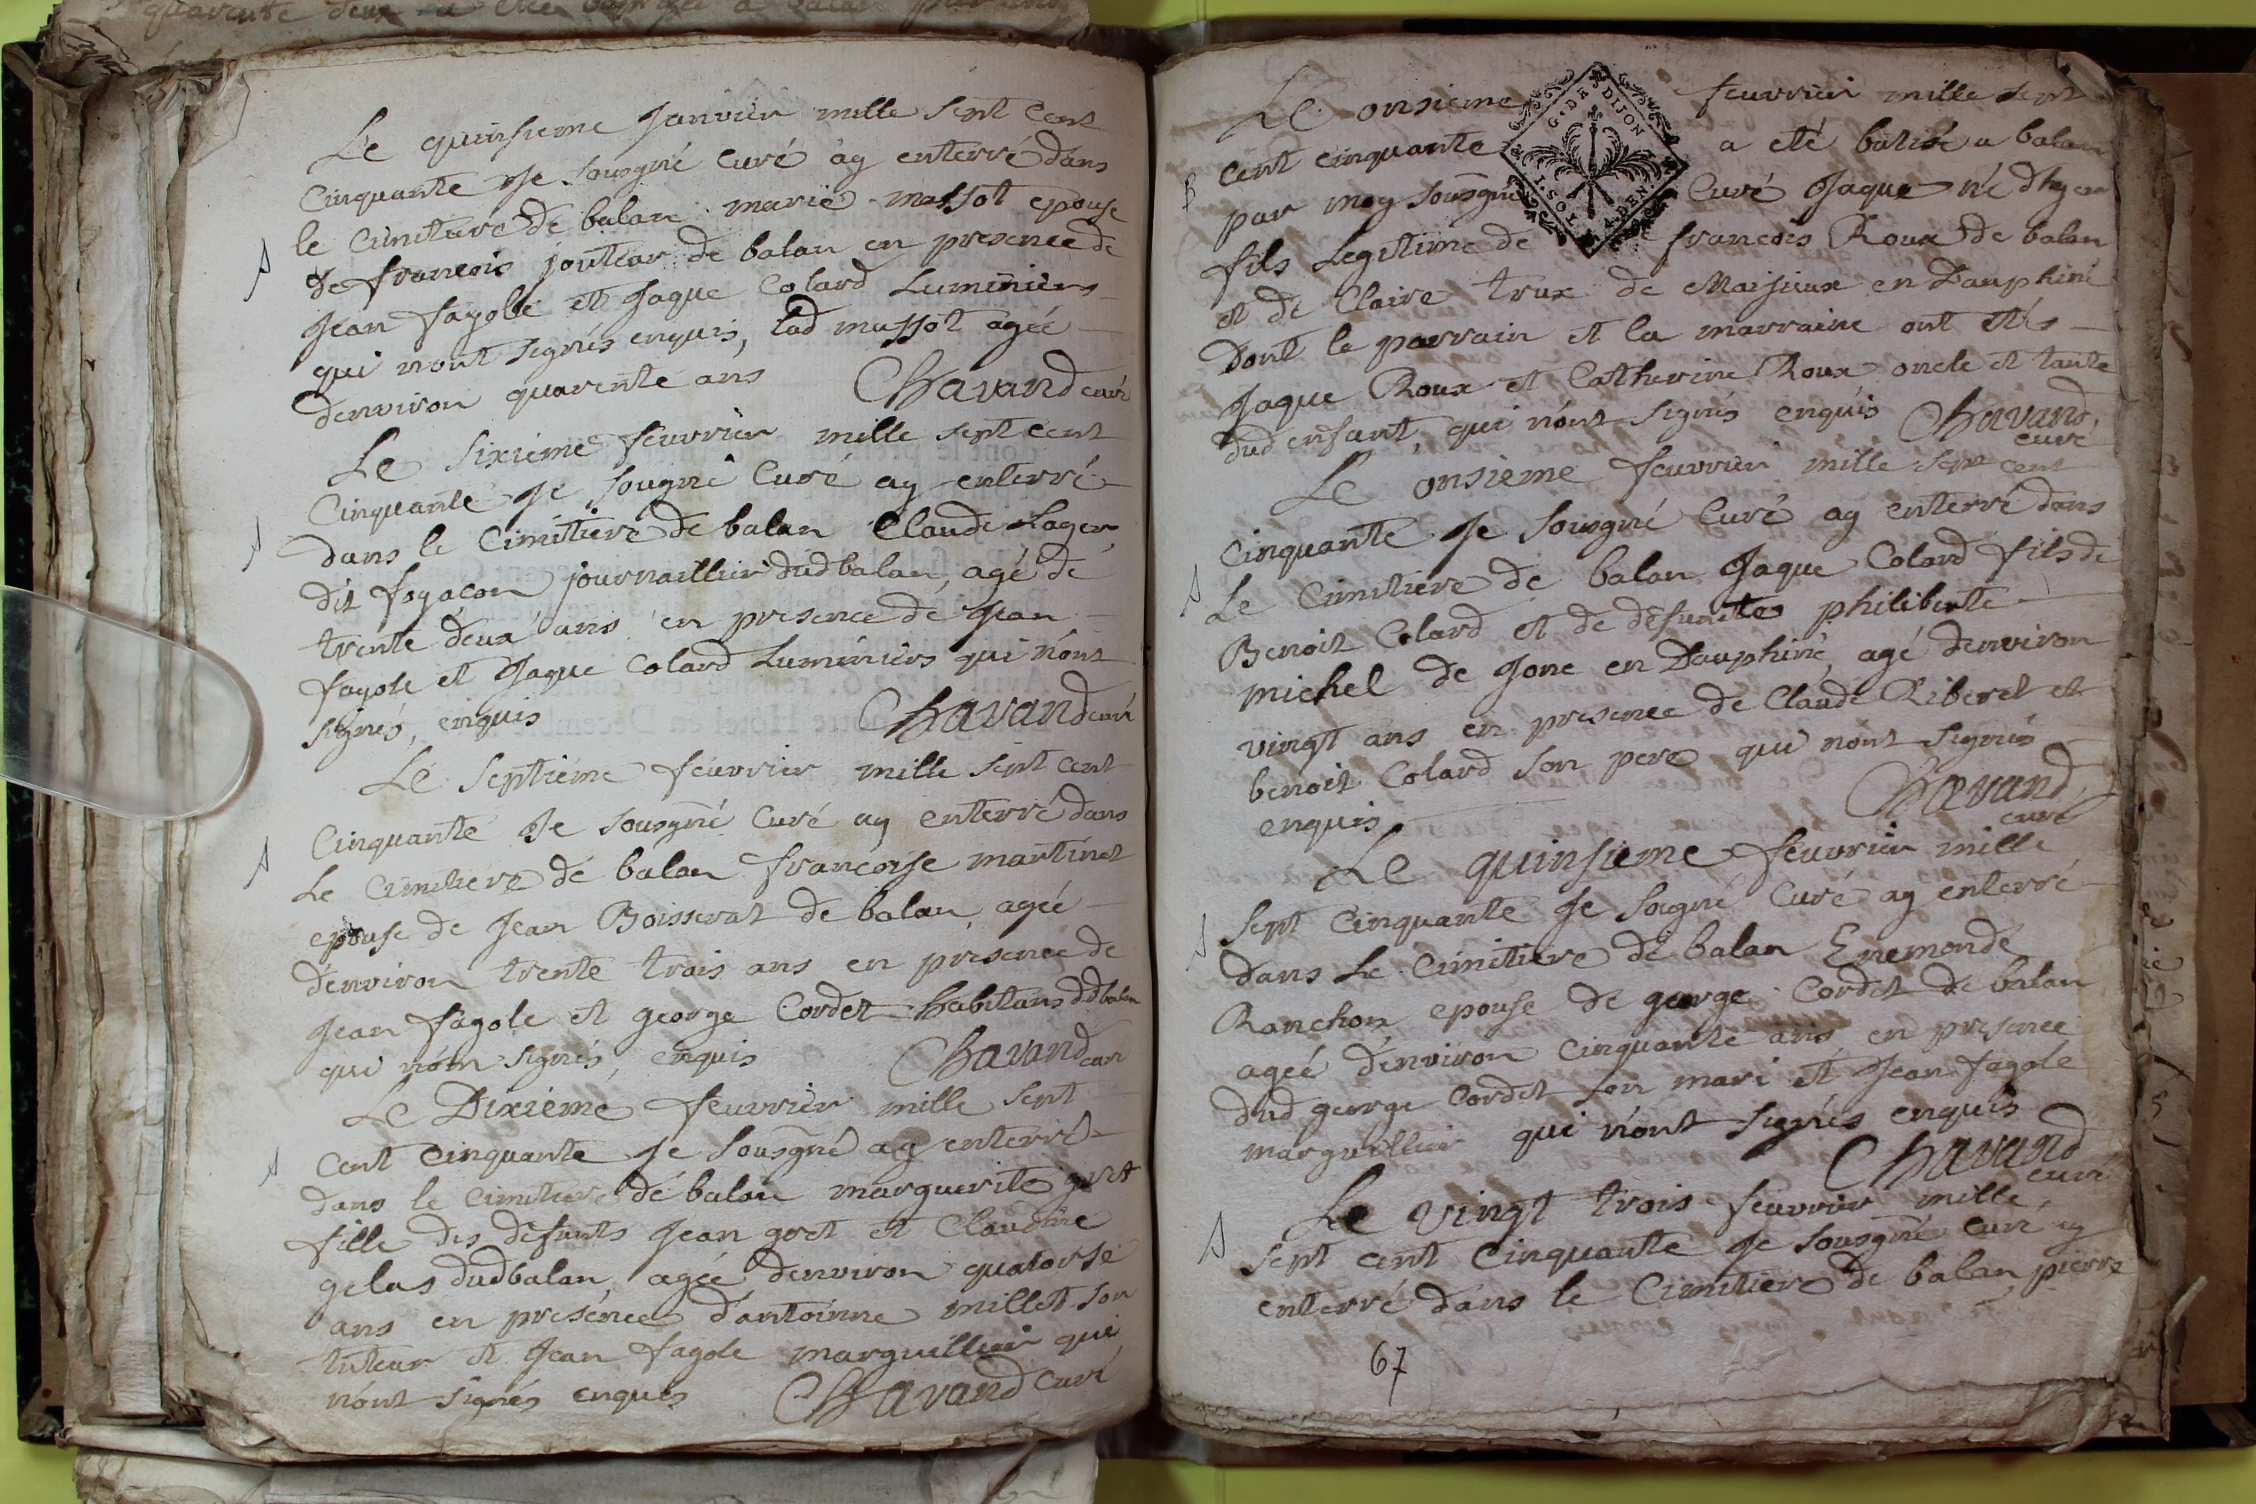 Le quinsieme Janvier mille sept cent
Cinquante Je sousigné Curé ay enterré dans
le Cimitiere de balan marie massot epouse
S
de francois joutear de balan en presence de
Jean fagole et Jaque Colard Luminiers
qui nont signés enquis, lad massot agée
denviron quarente ans Chavand curé
Le Sixieme feuvrier mille sept cent
Cinquante Je sousigné Curé ay enterré
S
dans le Cimitiere de balan Claude Lager
dit fogacon journaillier dudbalan, agé de
trente deux ans en presence de Jean
fagole et Jaque Colard Luminiers qui nont
signés, enquis Chavand curé
Le septieme feuvrier mille sept cent
Cinquante Je sousigné Curé ay enterré dans
S
Le Cimitiere de balan francoise martinet
epouse de Jean Boisserat de balan agée
denviron trente trois ans en presence de
Jean fagole et george Cordet habitans ddbalan
qui nont signés, enquis Chavand curé
Le Dixieme feuvrier mille sept
S
cent cinquante Je sousigné ay enterré
dans le cimitiere de balan marguerite goet
fille des defunts Jean goet et Claudine
gelas dudbalan, agée denviron quatorse
ans en presence dantoinne millet son
tuteur et Jean fagole marguillier qui
nont signés enquis Chavand curé
Le onsieme feuvrier mille sept
G. DE DIJON
cent cinquante a eté batisé a balan
B
par moy sousigné Curé Jaque né dhyer
fils Legitime de francois Roux de balan
et de Claire trux de Maisieux en Dauphiné
Dont le parrain et la marraine ont etés
Jaque Roux et Catherine Roux oncle et tante
dud enfant, qui nont signés enquis Chavand
curé
Le onsieme feuvrier mille sept cent
Cinquante Je sousigné Curé ay enterré dans
S
Le Cimitiere de balan Jaque Colard fils de
Benoit Colard et de defuntes philiberte
michel de Jone en Dauphiné, agé denviron
vingt ans en presence de Claude Riberet et
benoit Colard son pere qui nont signés
enquis Chavand
curé
Le quinsieme feuvrier mille
S
sept cinquante Je sousigné Curé ay enterré
dans Le Cimitiere de balan Enemonde
Ranchon epouse de george Cordet de balan
agée denviron cinquante ans, en presence
dud george Cordet son mari et Jean fagole
marguillier qui nont signés enquis
Chavand
curé
Le vingt trois feuvrier mille
S
sept cent Cinquante Je sousigné curé ay
enterré dans le Cimitiere de balan pierre
67